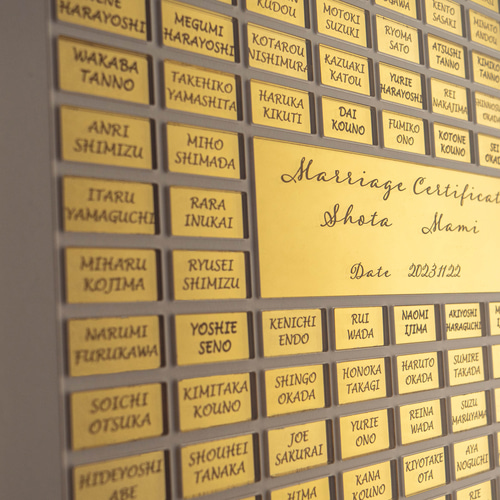 HARAYOSHI
MEGUMI
HARAYOSHI
KUDOU
MOTOKI
SUZUKI
RYOMA
SATO
KENTO
SASAKI
MINATO
WAKABA
TANNO
TAKEHIKO
YAMASHITA
KOTAROU
NISHIMURA
KAZUAKI
KATOU
YURIE
HARAYOSHI
ATSUSHI
TANNO
REI
NAKAJIMA
ANRI
SHIMIZU
MIHO
SHIMADA
HARUKA
KIKUTI
DAI
KOUNO
FUMIKO
ONO
KOTONE
KOUNO
ITARU
YAMAGUCHI
RARA
INUKAI
Marriage Certificat
Shota Mami
Date 2023.11.22
MIHARU
KOJIMA
RYUSEI
SHIMIZU
NARUMI
FURUKAWA
YOSHIE
SENO
KENICHI
ENDO
RUI
WADA
NAOMI
IJIMA
AKIYOSHI
HARAGUCHI
SOICHI
OTSUKA
KIMITAKA
KOUNO
SHINGO
OKADA
HONOKA
TAKAGI
HARUTO
OKADA
SUMIRE
TAKADA
HIDEYOSHI
ABE
SHOUHEI
TANAKA
JOE
SAKURAI
YURIE
ONO
REINA
WADA
SUZU
MARUYAMA
HIMA
KANA
KOUNO
KIYOTAKE
OTA
AYA
NOGUCHI
RIE